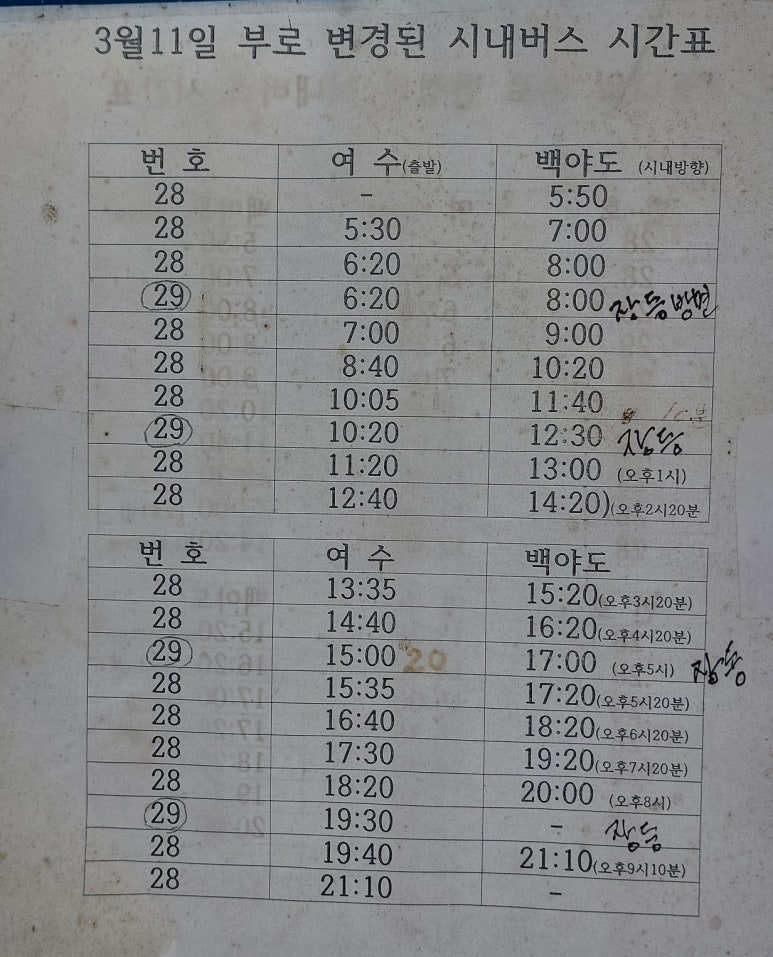 3월11일 부로 변경된 시내버스 시간표
번 호 여 수(출발) 백야도 (시내방향)
28 - 5:50
28 5:30 7:00
28 6:20 8:00
29 6:20 8:00 장등방면
28 7:00 9:00
28 8:40 10:20
28 10:05 11:40 10분
29 10:20 12:30 장등
28 11:20 13:00 (오후1시)
28 12:40 14:20)(오후2시20분
번 호 여 수 백야도
28 13:35 15:20(오후3시20분)
28 14:40 16:20(오후4시20분)
29 15:00 20 17:00 (오후5시) 장등
28 15:35 17:20(오후5시20분)
28 16:40 18:20(오후6시20분)
28 17:30 19:20(오후7시20분)
28 18:20 20:00 (오후8시)
29 19:30 - 장등
28 19:40 21:10(오후9시10분)
28 21:10 -